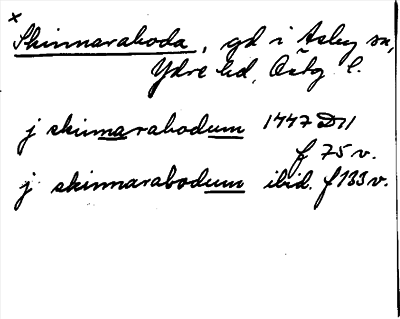 ×
Skinnaraboda, gd i Asby sn,
Ydre hd, Östg l.
j skinnarabodum 1447 D11
f 75 v.
j skinnarabodum ibid. f 133 v.